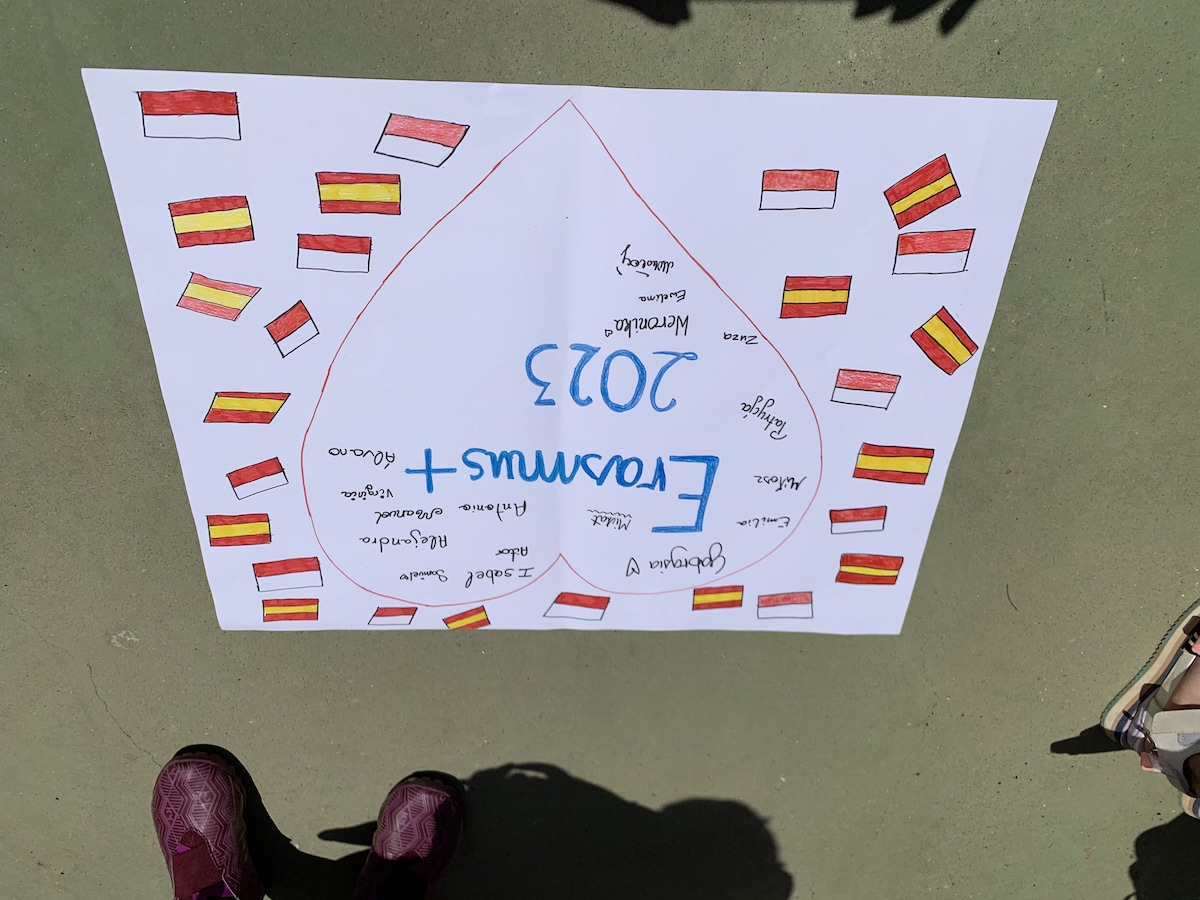 Gabrysia ♡
Isabel
Samuel ♡
Aitor
Alejandra
Emilia
Michał
Antonio
Manuel
Virginia
Erasmus+
Miłosz
Álvaro
Patrycja
2023
Zuza
Weronika ♡
Ewelina
Mikołaj :)